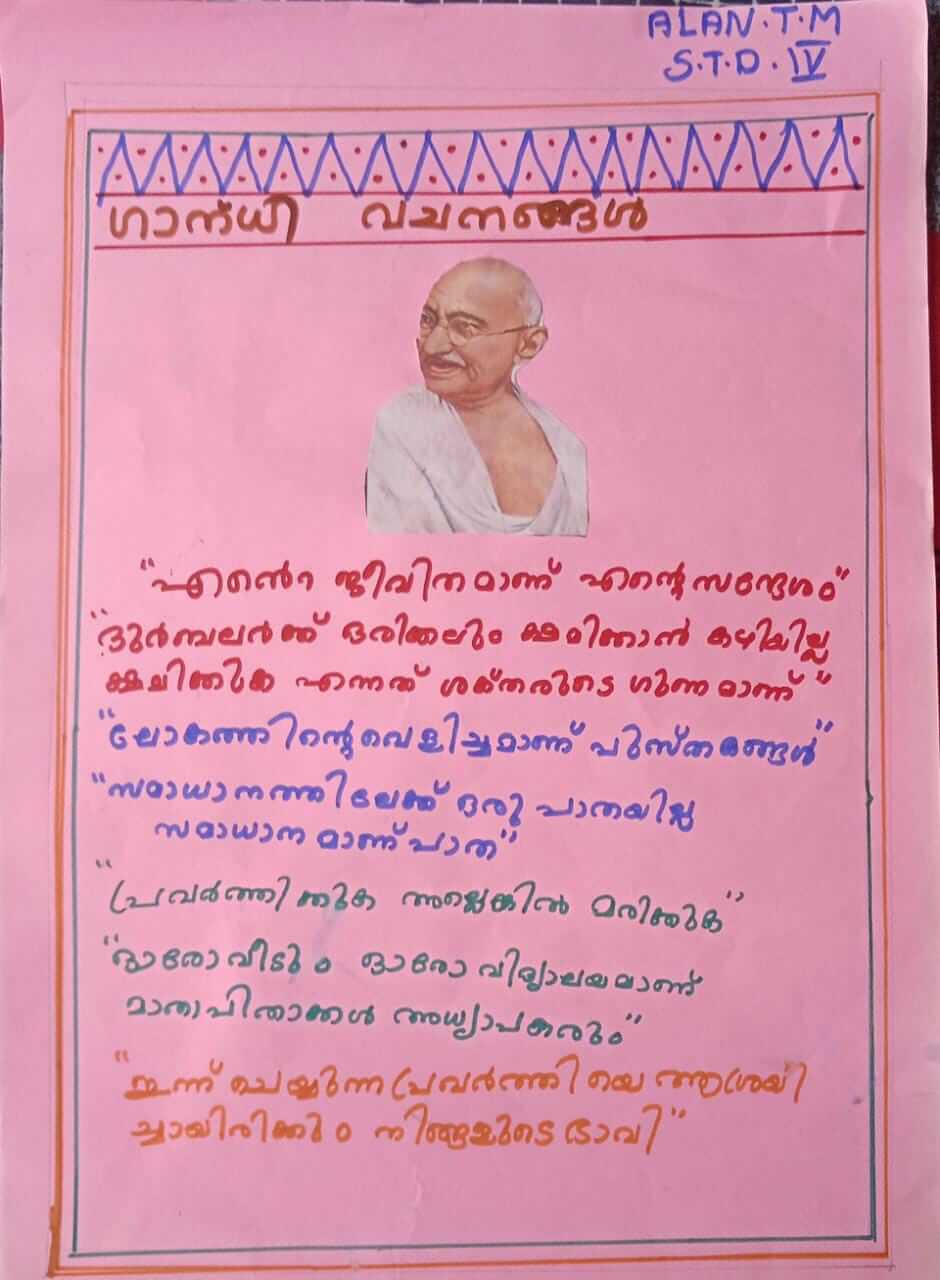 ALAN.T.M
S.T.D. IV
ഗാന്ധി വചനങ്ങൾ
"എൻ്റെ ജീവിതമാണ് എന്റെ സന്ദേശം"
"ദുർബലർക്ക് ഒരിക്കലും ക്ഷമിക്കാൻ കഴിയില്ല
ക്ഷമിക്കുക എന്നത് ശക്തരുടെ ഗുണമാണ്"
"ലോകത്തിന്റെ വെളിച്ചമാണ് പുസ്തകങ്ങൾ"
"സമാധാനത്തിലേക്ക് ഒരു പാതയില്ല
സമാധാനമാണ് പാത"
"പ്രവർത്തിക്കുക അല്ലെങ്കിൽ മരിക്കുക"
"ഓരോ വീടും ഓരോ വിദ്യാലയമാണ്
മാതാപിതാക്കൾ അധ്യാപകരും"
"ഇന്ന് ചെയ്യുന്ന പ്രവർത്തിയെ ആശ്രയി
ച്ചായിരിക്കും നിങ്ങളുടെ ഭാവി"